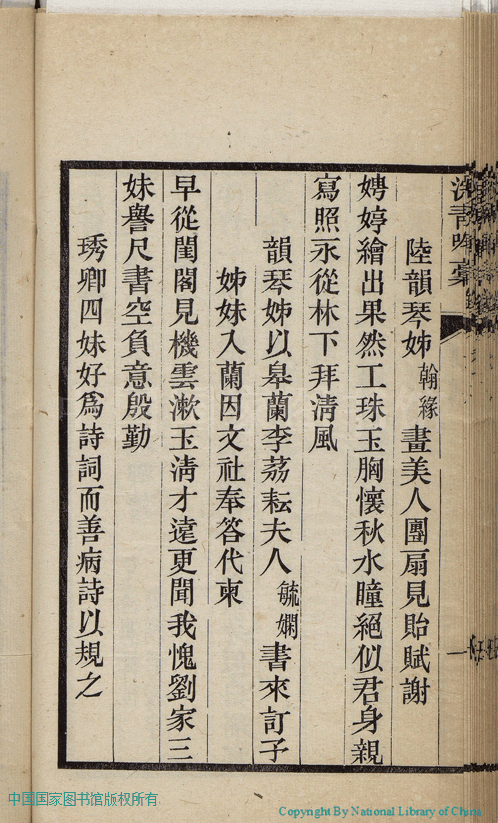 洗青吟稾
陸韻琴姊翰緣畫美人團扇見貽賦謝
娉婷繪出果然工珠玉胸懷秋水瞳絕似君身親
寫照永從林下拜清風
韻琴姊以皋蘭李荔耘夫人毓嫻書來訂予
姊妹入蘭因文社奉答代柬
早從閨閣見機雲漱玉清才遠更聞我愧劉家三
妹譽尺書空負意殷勤
琇卿四妹好爲詩詞而善病詩以規之
中国国家图书馆版权所有
Copyright By National Library of China